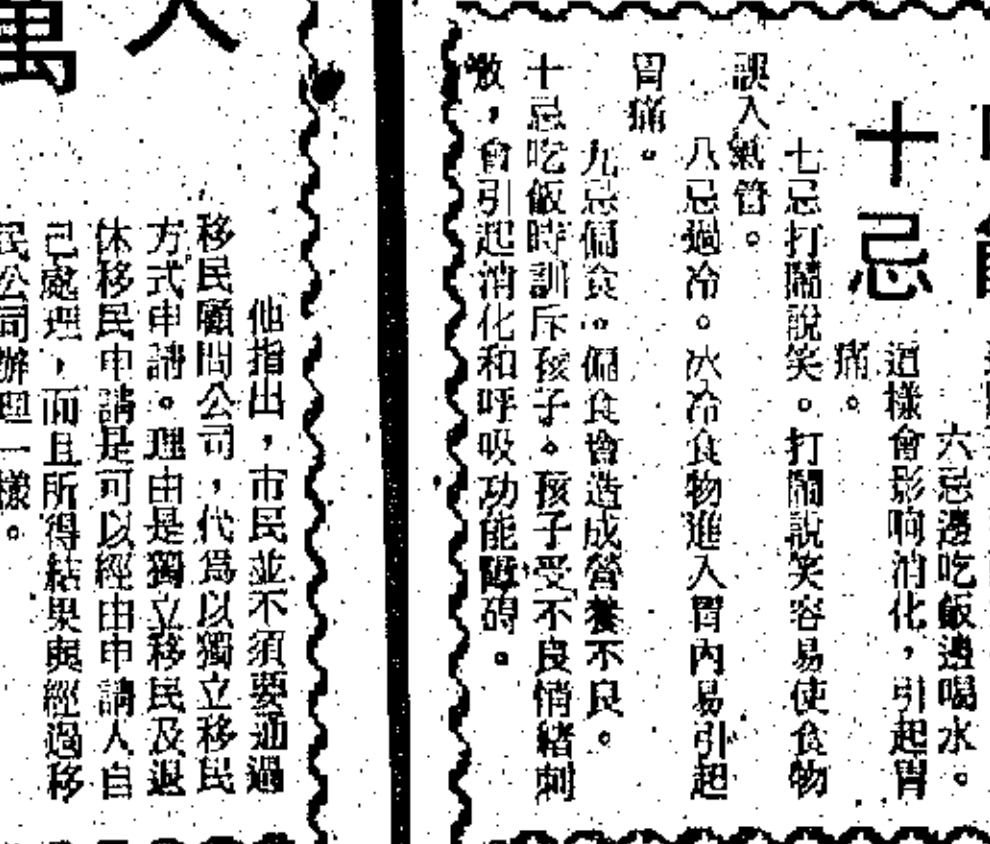 十忌
六忌邊吃飯邊喝水。
這樣會影响消化，引起胃
痛。
七忌打鬧說笑。打鬧說笑容易使食物
誤入氣管。
八忌過冷。冰冷食物進入胃內易引起
胃痛。
九忌偏食。偏食會造成營養不良。
十忌吃飯時訓斥孩子。孩子受不良情緒刺
激，會引起消化和呼吸功能障碍。
他指出，市民並不須要通過
移民顧問公司，代爲以獨立移民
方式申請。理由是獨立移民及退
休移民申請是可以經由申請人自
己處理，而且所得結果與經過移
民公司辦理一樣。